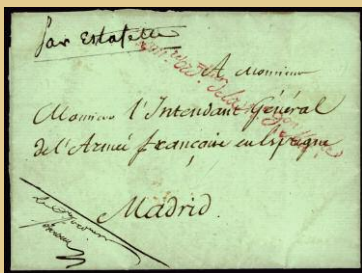 Par Estafette
A Monsieur
Monsieur l'Intendant Général
de l'Armée françoise en Espagne
Madrid.